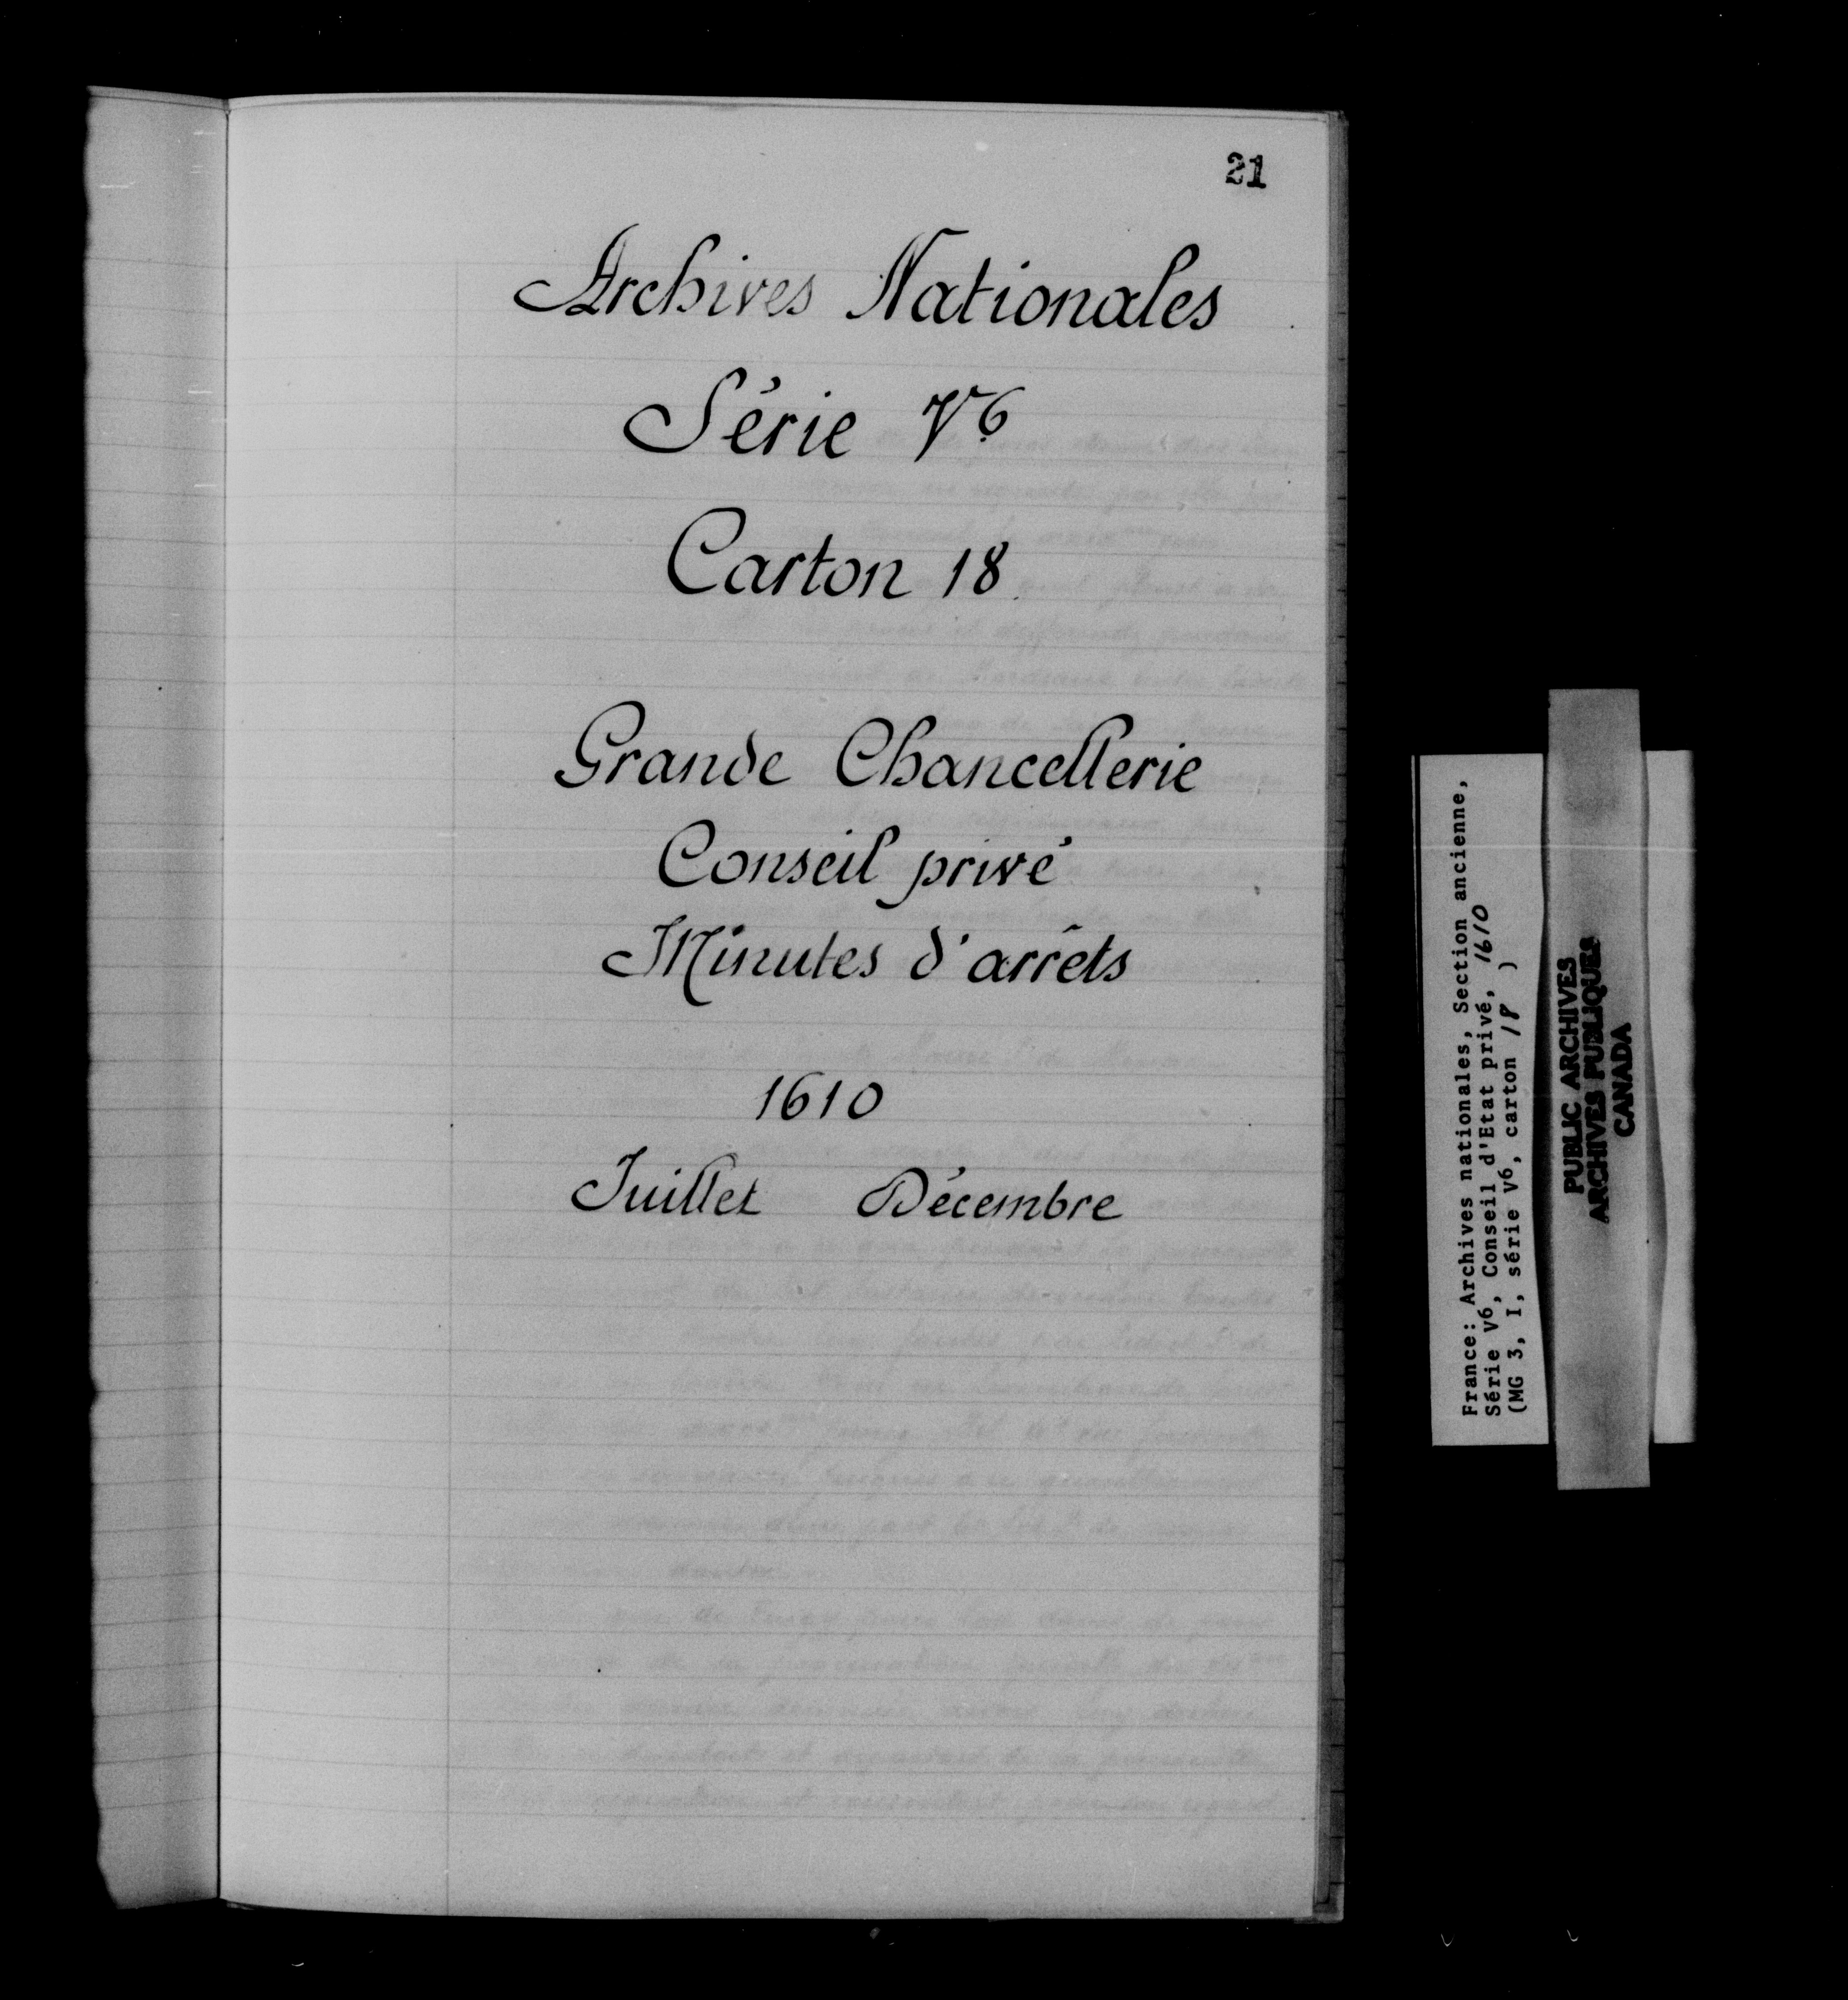 21
Archives Nationales
Série V6
Carton 18.
Grande Chancellerie
Conseil privé
Minutes d'arrêts
1610
Juillet Décembre
France: Archives nationales, Section ancienne,
Série V6, Conseil d'Etat privé, 1610
(MG 3, I, série V6, carton 18 )
PUBLIC ARCHIVES
ARCHIVES PUBLIQUES
CANADA